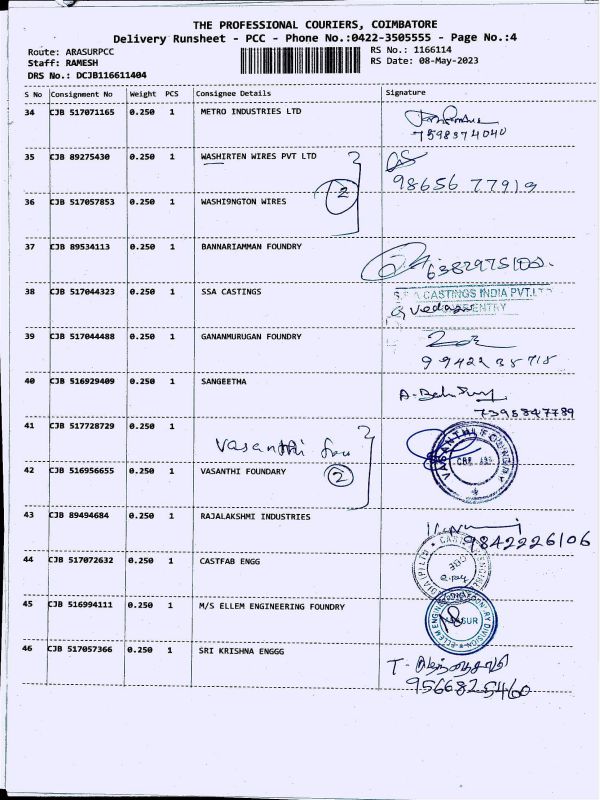 THE PROFESSIONAL COURIERS, COIMBATORE
Delivery Runsheet - PCC - Phone No.:0422-3505555 - Page No.:4
Route: ARASURPCC RS No.: 1166114
Staff: RAMESH RS Date: 08-May-2023
DRS No.: DCJB116611404
S No Consignment No Weight PCS Consignee Details Signature
34 CJB 517071165 0.250 1 METRO INDUSTRIES LTD
7598374040
35 CJB 89275430 0.250 1 WASHIRTEN WIRES PVT LTD
98656 77919
36 CJB 517057853 0.250 1 WASHI9NGTON WIRES 2
37 CJB 89534113 0.250 1 BANNARIAMMAN FOUNDRY
6382975100.
38 CJB 517044323 0.250 1 SSA CASTINGS
CASTINGS INDIA PVT.LTD
ENTRY
39 CJB 517044488 0.250 1 GANANMURUGAN FOUNDRY
40 CJB 516929409 0.250 1 SANGEETHA
7395847789
41 CJB 517728729 0.250 1
Vasanthi
VASANTHI FOUNDRY
42 CJB 516956655 0.250 1 VASANTHI FOUNDARY 2
43 CJB 89494684 0.250 1 RAJALAKSHMI INDUSTRIES
9842226106
44 CJB 517072632 0.250 1 CASTFAB ENGG
45 CJB 516994111 0.250 1 M/S ELLEM ENGINEERING FOUNDRY
18
46 CJB 517057366 0.250 1 SRI KRISHNA ENGGG
9566825460